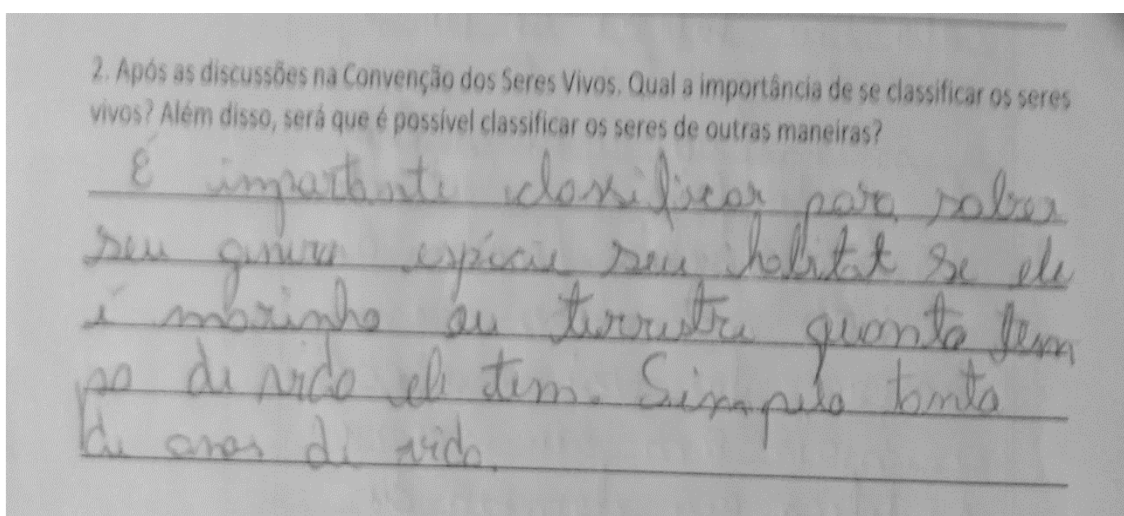 2. Após as discussões na Convenção dos Seres Vivos. Qual a importância de se classificar os seres
vivos? Além disso, será que é possível classificar os seres de outras maneiras?
É importante classificar para saber
seu gênero espécie seu habitat se ele
é marinho ou terrestre quanto tem
po de vida ele tem. Sim pelo tanto
de anos de vida.